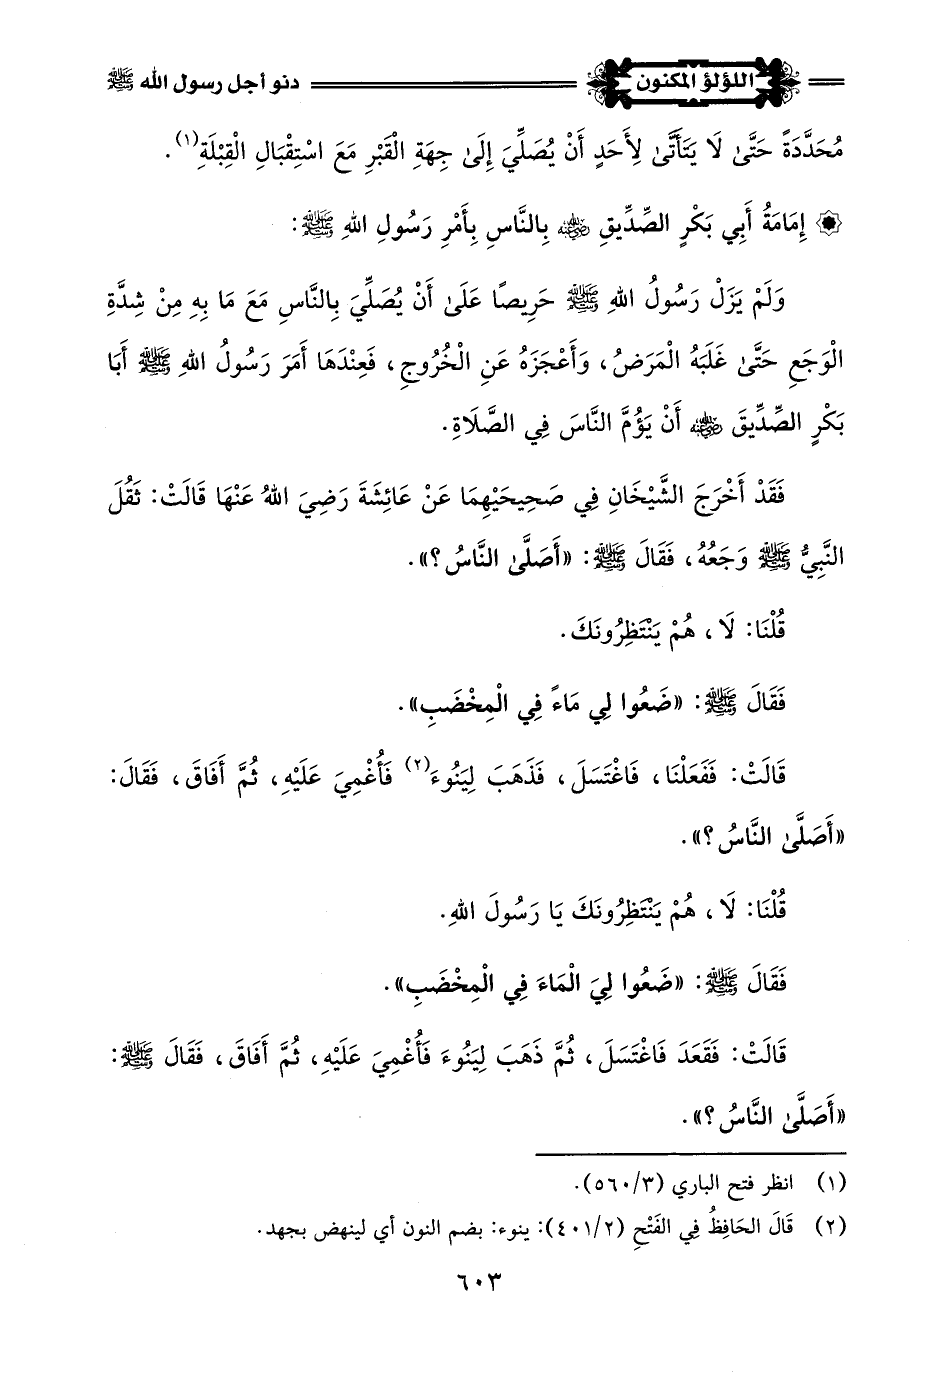 اللؤلؤ المكنون دنو أجل رسول الله ﷺ
مُحَدَّدَةً حَتَّىٰ لَا يَتَأَتَّىٰ لِأَحَدٍ أَنْ يُصَلِّيَ إِلَىٰ جِهَةِ الْقَبْرِ مَعَ اسْتِقْبَالِ الْقِبْلَةِ(١).
۞ إِمَامَةُ أَبِي بَكْرٍ الصِّدِّيقِ رضي الله عنه بِالنَّاسِ بِأَمْرِ رَسُولِ اللهِ ﷺ:
وَلَمْ يَزَلْ رَسُولُ اللهِ ﷺ حَرِيصًا عَلَىٰ أَنْ يُصَلِّيَ بِالنَّاسِ مَعَ مَا بِهِ مِنْ شِدَّةِ
الْوَجَعِ حَتَّىٰ غَلَبَهُ الْمَرَضُ، وَأَعْجَزَهُ عَنِ الْخُرُوجِ، فَعِنْدَهَا أَمَرَ رَسُولُ اللهِ ﷺ أَبَا
بَكْرٍ الصِّدِّيقَ رضي الله عنه أَنْ يَؤُمَّ النَّاسَ فِي الصَّلَاةِ.
فَقَدْ أَخْرَجَ الشَّيْخَانِ فِي صَحِيحَيْهِمَا عَنْ عَائِشَةَ رَضِيَ اللهُ عَنْهَا قَالَتْ: ثَقُلَ
النَّبِيُّ ﷺ وَجَعُهُ، فَقَالَ ﷺ: «أَصَلَّىٰ النَّاسُ؟».
قُلْنَا: لَا، هُمْ يَنْتَظِرُونَكَ.
فَقَالَ ﷺ: «ضَعُوا لِي مَاءً فِي الْمِخْضَبِ».
قَالَتْ: فَفَعَلْنَا، فَاغْتَسَلَ، فَذَهَبَ لِيَنُوءَ(٢) فَأُغْمِيَ عَلَيْهِ، ثُمَّ أَفَاقَ، فَقَالَ:
«أَصَلَّىٰ النَّاسُ؟».
قُلْنَا: لَا، هُمْ يَنْتَظِرُونَكَ يَا رَسُولَ اللهِ.
فَقَالَ ﷺ: «ضَعُوا لِيَ الْمَاءَ فِي الْمِخْضَبِ».
قَالَتْ: فَقَعَدَ فَاغْتَسَلَ، ثُمَّ ذَهَبَ لِيَنُوءَ فَأُغْمِيَ عَلَيْهِ، ثُمَّ أَفَاقَ، فَقَالَ ﷺ:
«أَصَلَّىٰ النَّاسُ؟».
(١) انظر فتح الباري (٥٦٠/٣).
(٢) قَالَ الحَافِظُ فِي الفَتْحِ (٤٠١/٢): ينوء: بضم النون أي لينهض بجهد.
٦٠٣